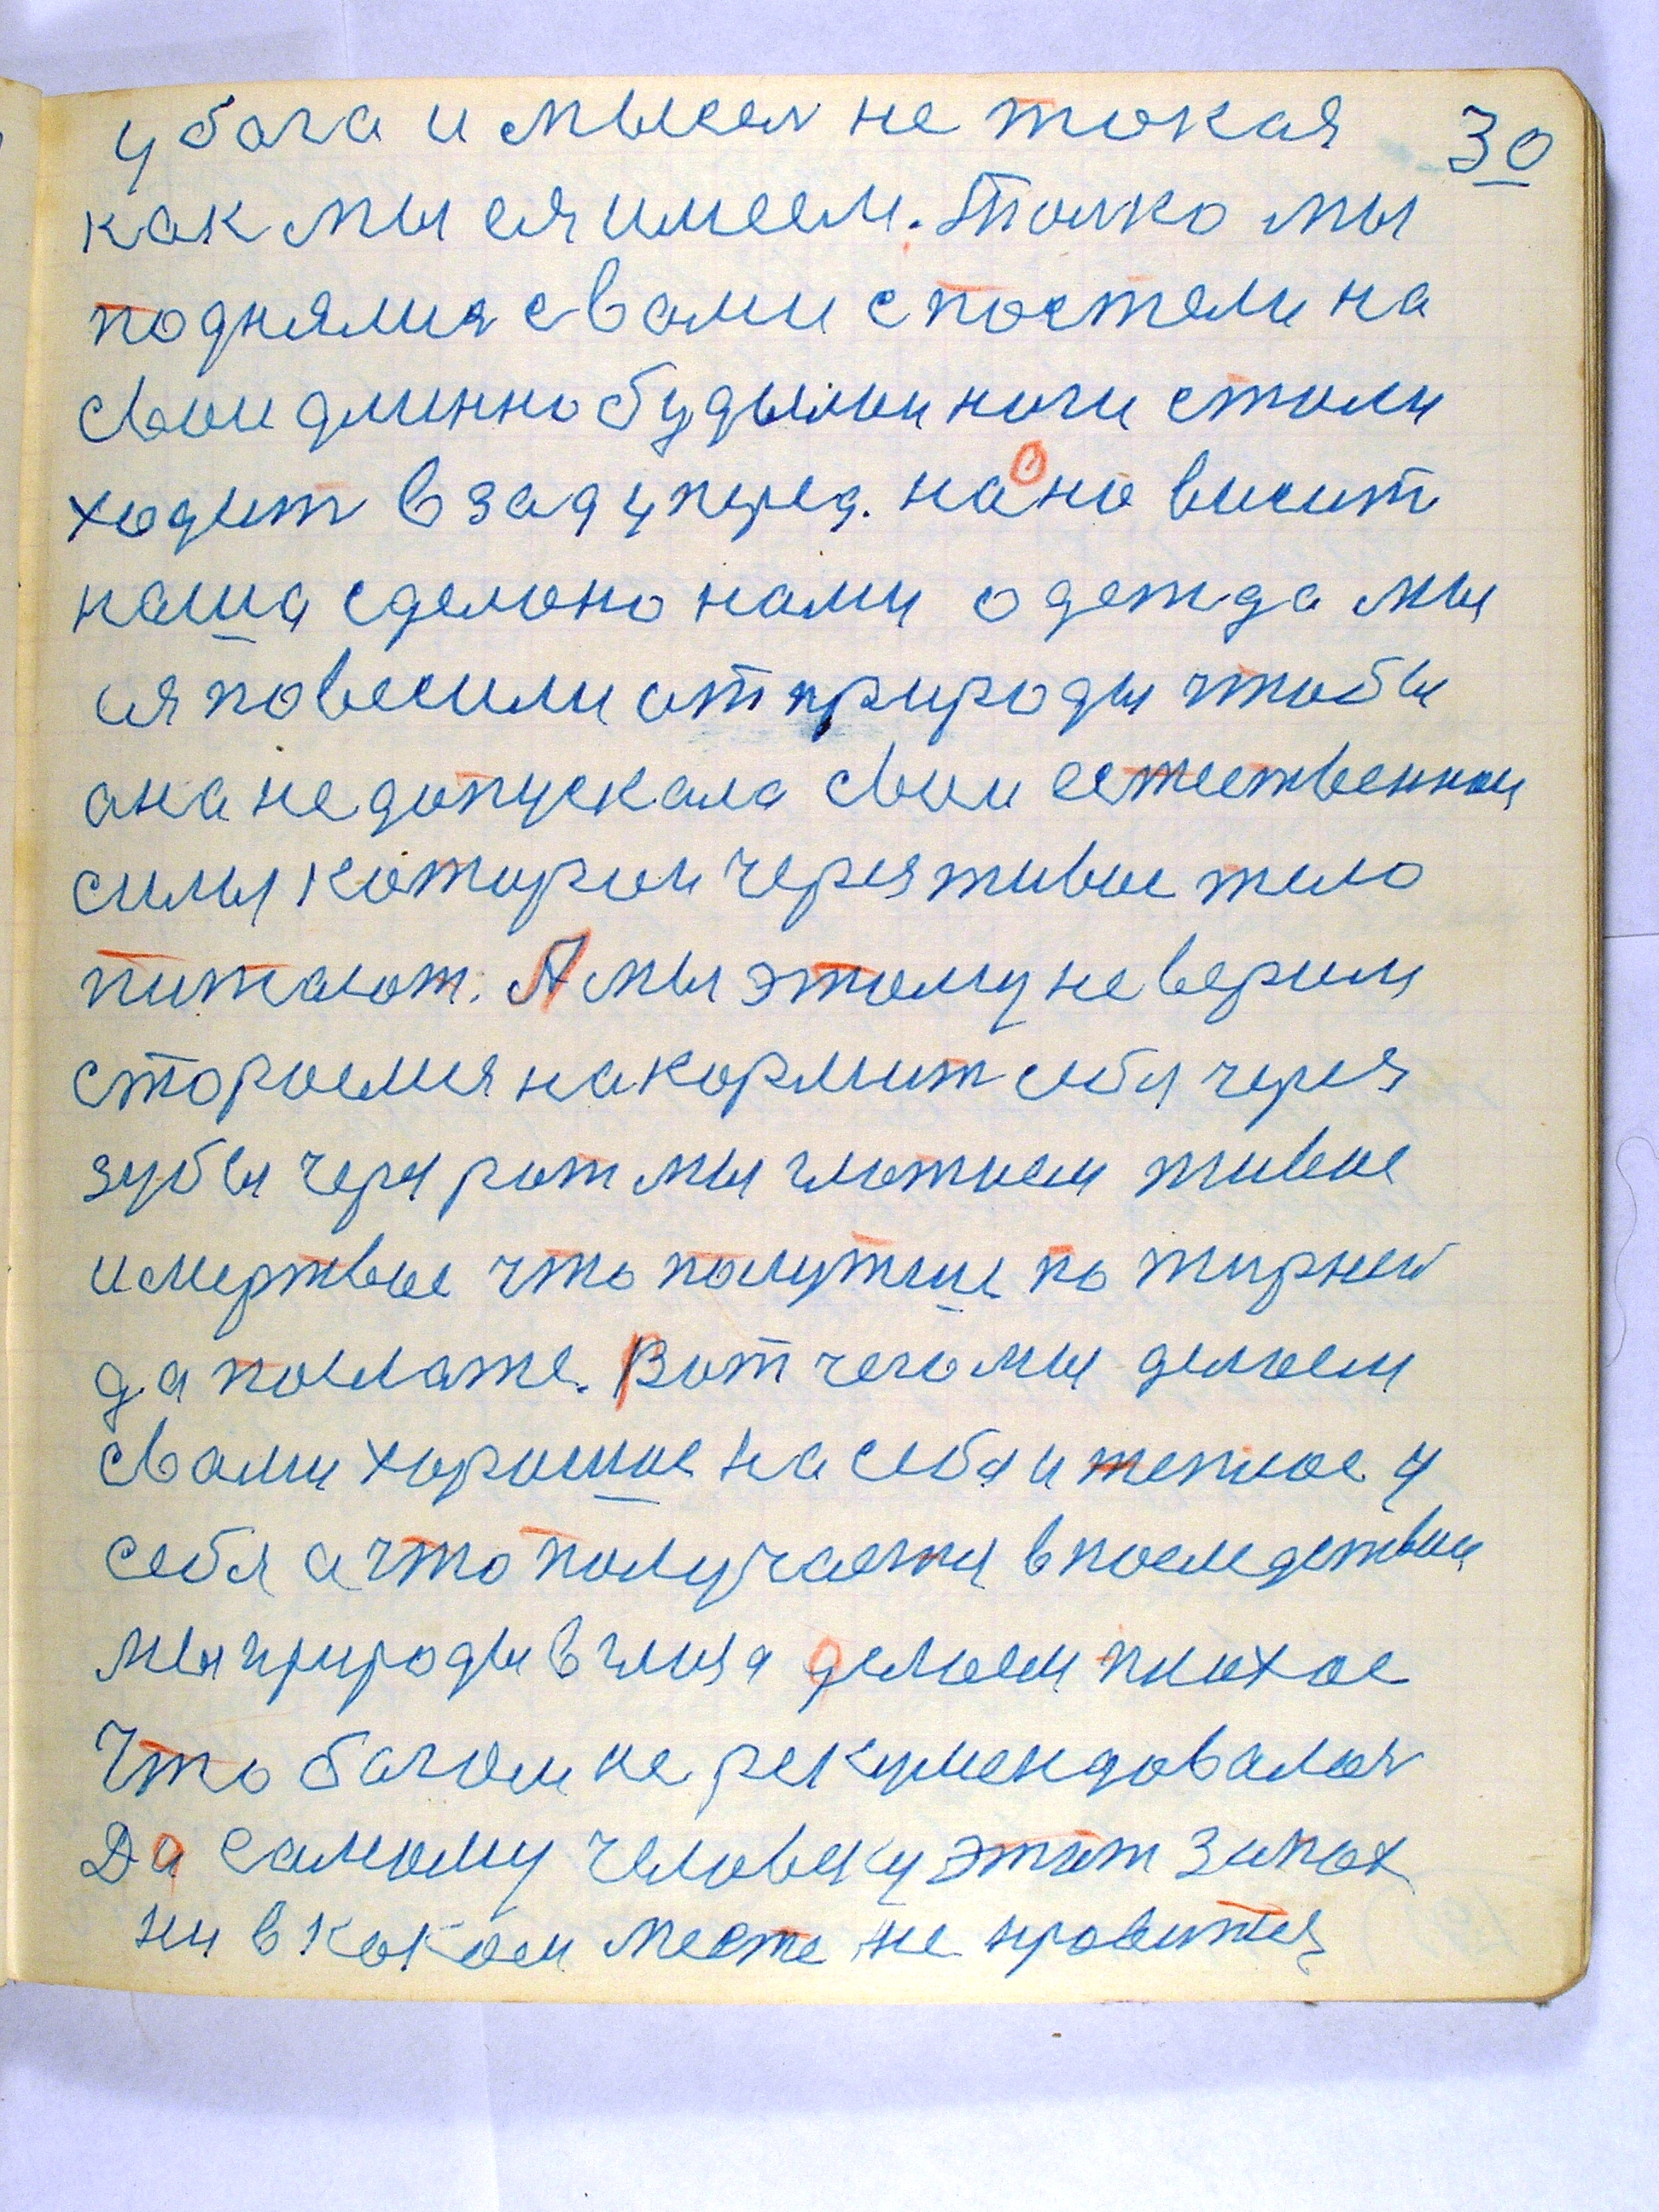 у бога и мысел не токая 30
как мы ея имеем. Толко мы
поднялися с вами с постели на
свои длинно будылыи ноги стали
ходит взад уперед. на оно висит
наша сделоно нами одежда мы
ея повесили от природы чтобы
она не допускала свои естественои
силы которои через живое тело
питают. А мы этому не верим
стороемся накормит себя через
зубы через рот мы глотаем живое
и мертвое что получше по жирней
да послаже. Вот чего мы делаем
с вами хорошое на себя и теплое у
себя а что получается впоследствии
мы природы в глаза делаем плохое
Что богом не рекумендовалося
Да самому человеку этот запах
ни в каком месте не нровится